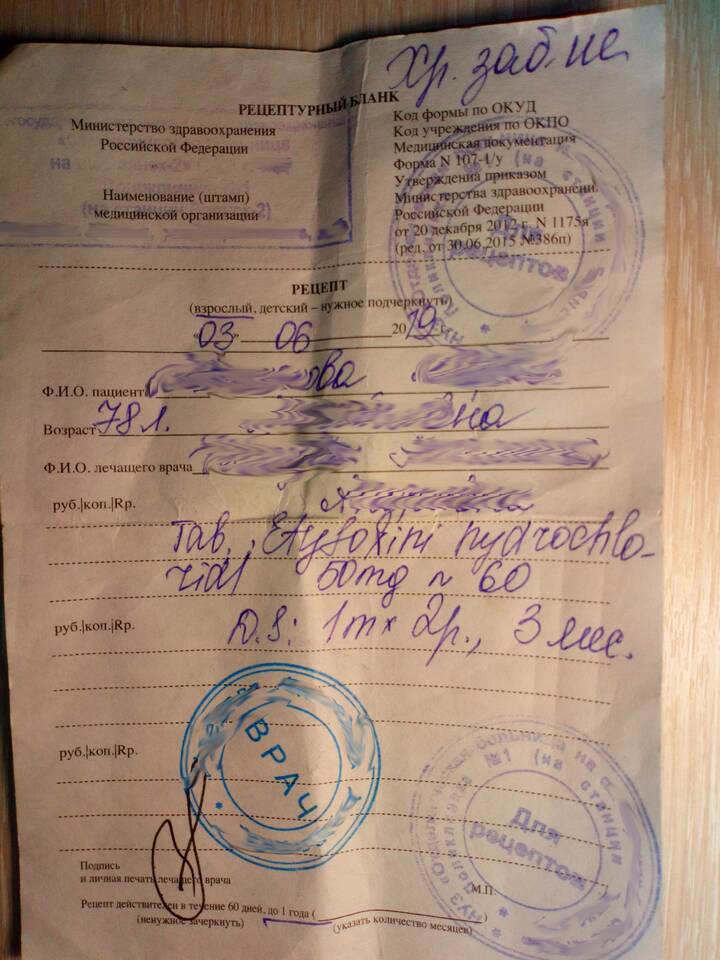 Хр. заб-ие
РЕЦЕПТУРНЫЙ БЛАНК
Министерство здравоохранения
Российской Федерации
Наименование (штамп)
медицинской организации
Код формы по ОКУД
Код учреждения по ОКПО
Медицинская документация
Форма N 107-1/у
Утверждена приказом
Министерства здравоохранени.
Российской Федерации
от 20 декабря 2012 г. N 1175я
(ред. от 30.06.2015 №386п)
Для
рецептов
РЕЦЕПТ
(взрослый, детский – нужное подчеркнуть)
03 06 2019 г.
Ф.И.О. пациента ова
Возраст 78 л. на
Ф.И.О. лечащего врача
руб.|коп.|Rp.
Tab. Etyfoxini hydrochlo-
ridi 50mg N 60
руб.|коп.|Rp.
D.S: 1т х 2р., 3 мес.
руб.|коп.|Rp.
ВРАЧ
больница на с
поликлиника №1 (на станции
Для
рецептов
Подпись
и личная печать лечащего врача
М.П.
Рецепт действителен в течение 60 дней, до 1 года ( )
(ненужное зачеркнуть) (указать количество месяцев)